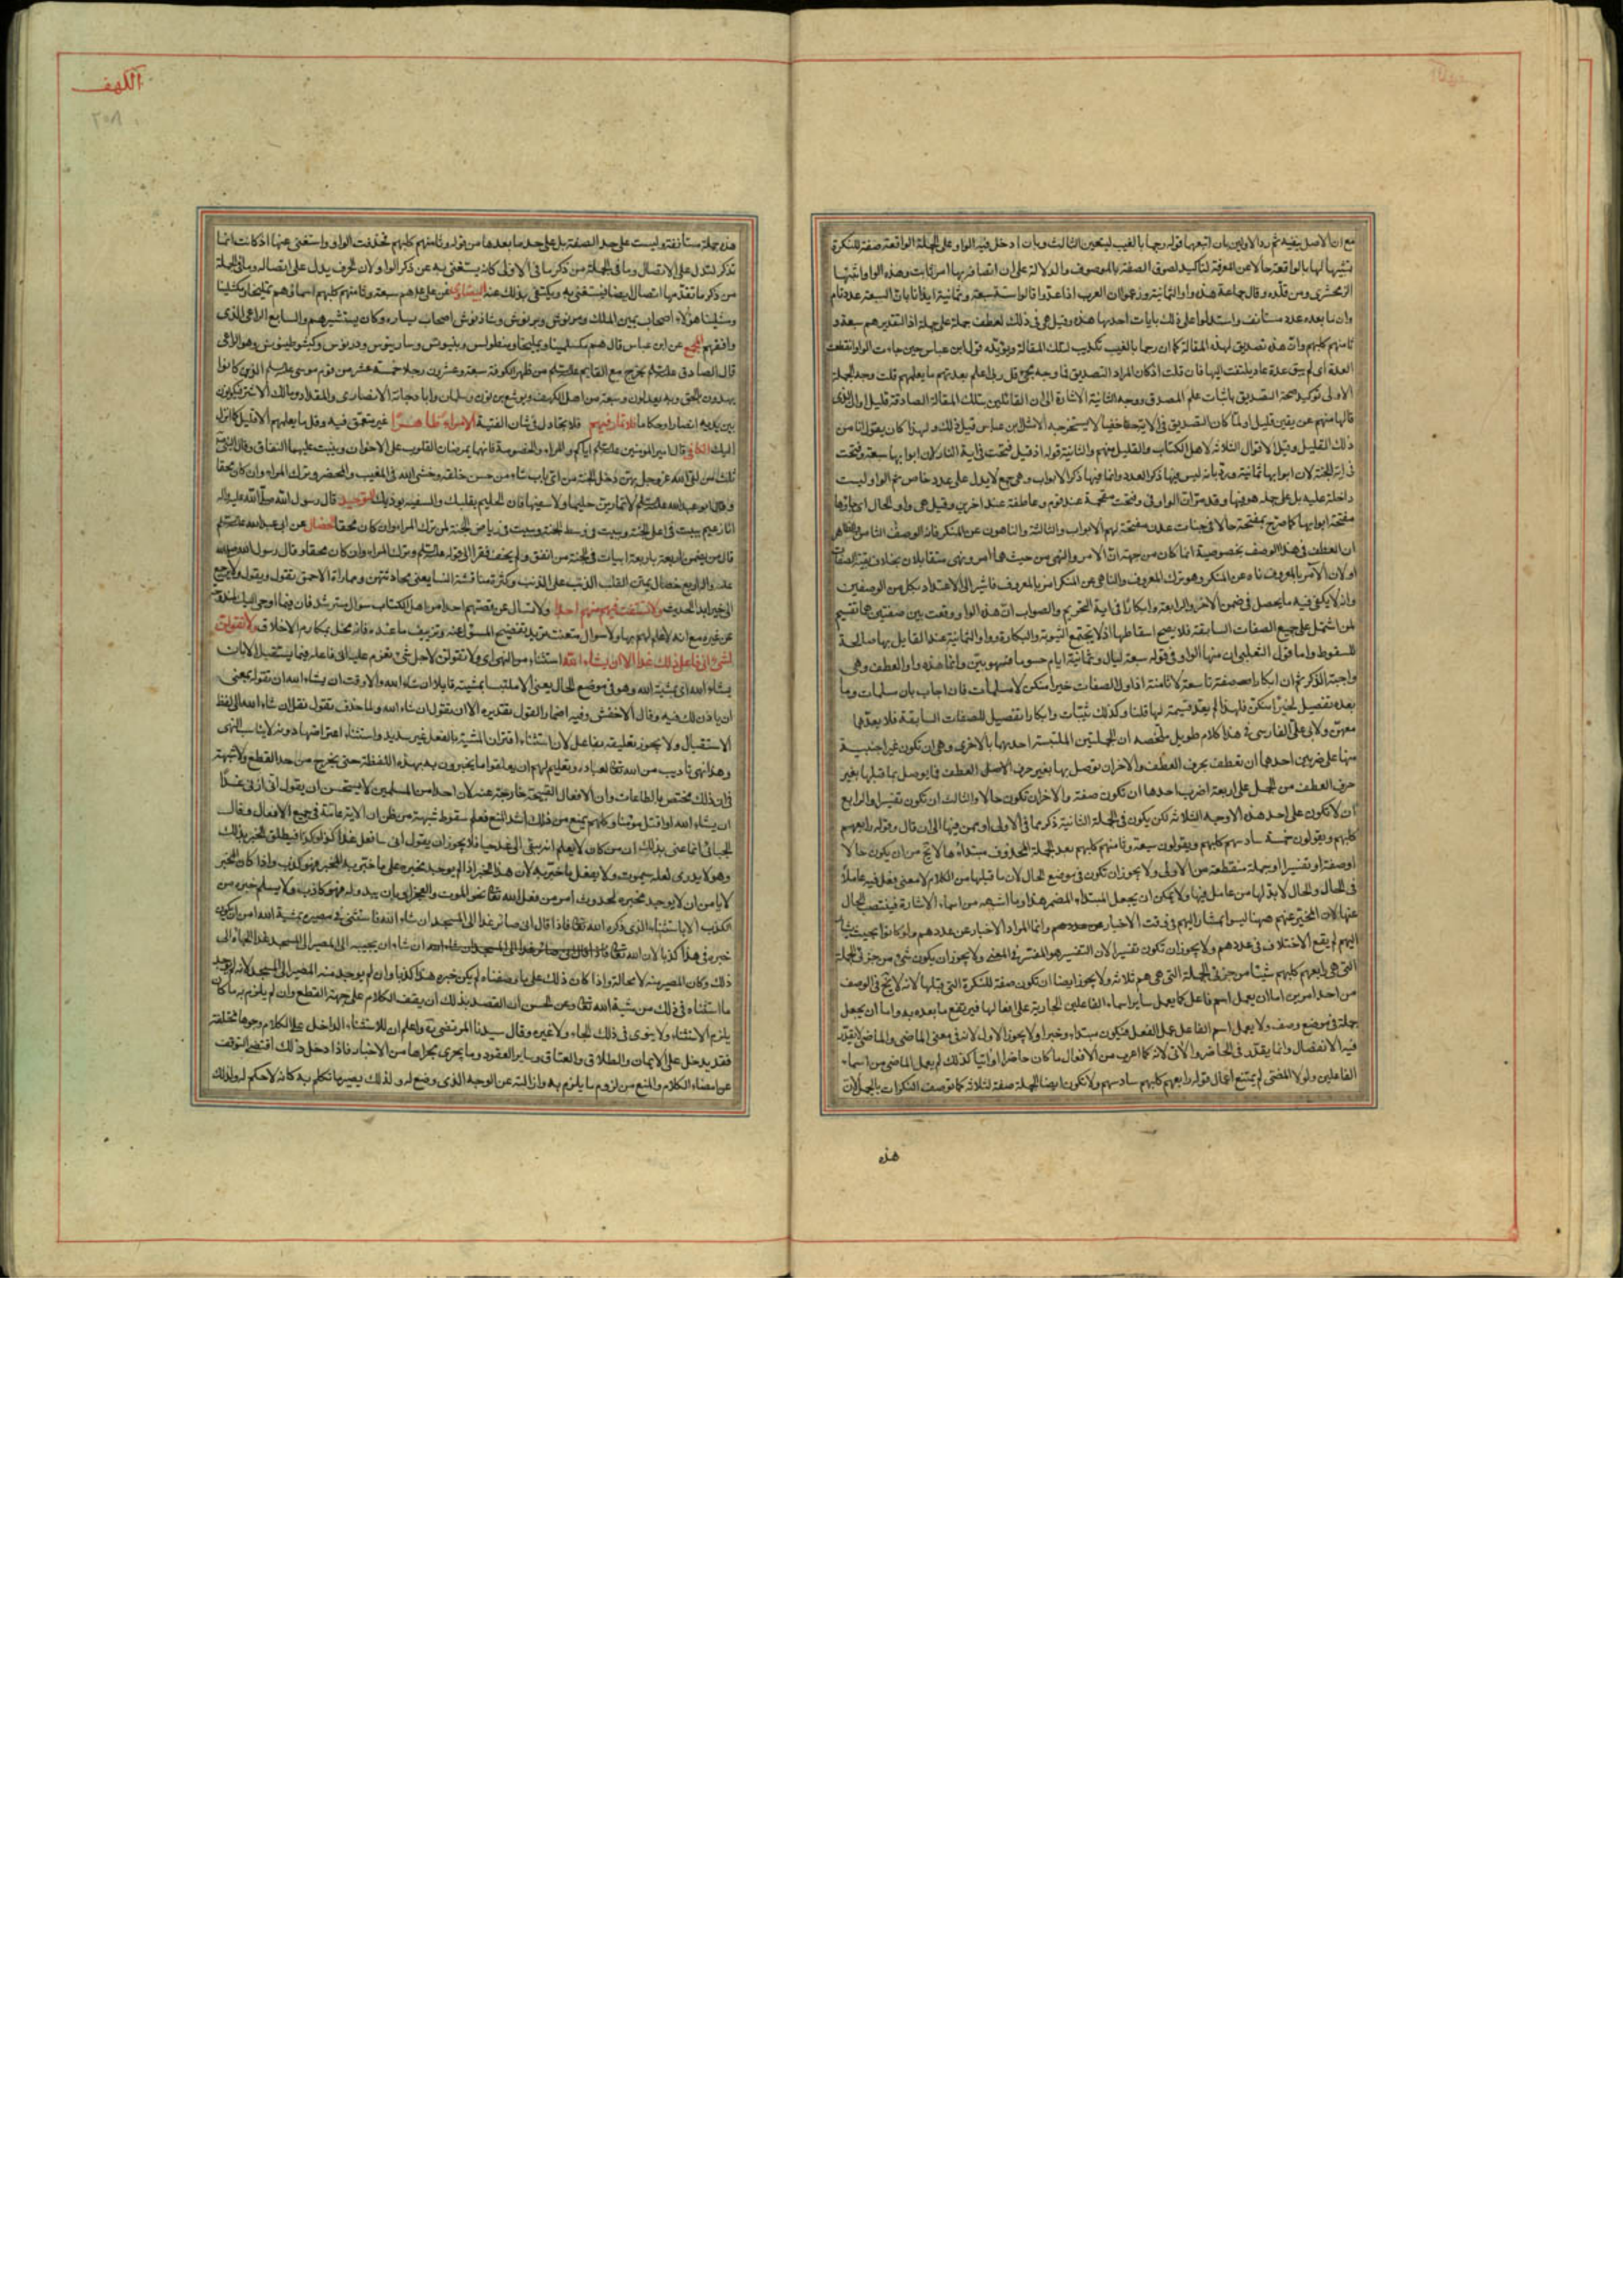 مع ان الاصل ينفيه ثم رد الاولين بان اتبعهما قوله رجما بالغيب ليتعين الثالث وبان ادخل فيه الواو على الجملة الواقعة صفة للنكرة
تشبيها لها بالواقعة حالا عن المعرفة لتاكيد لصوق الصفة بالموصوف والدلالة على ان اتصافه بها امر ثابت وهذه الواو اثبتها
الزمخشرى ومن قلده وقال جماعة هذه واو الثمانية وزعموا ان العرب اذا عدوا قالوا ستة سبعة وثمانية ايذانا بان السبعة عدد تام
وان ما بعده عدد مستانف واستدلوا على ذلك بايات احديها هذه وقيل هى فى ذلك لعطف جملة على جملة اذ التقدير هم سبعة و
ثامنهم كلبهم وان هذه تصديق لهذه المقالة كما ان رجما بالغيب تكذيب لتلك المقالة ويؤيده قول ابن عباس حين جاءت الواو انقطعت
العدة اى لم يبق عدة عاد يلتفت اليها فان قلت اذ كان المراد التصديق فما وجه مجئ قل ربى اعلم بعدتهم ما يعلمهم قلت وجه الجملة
الاولى توكيد صحة التصديق باثبات علم المصدق ووجه الثانية الاشارة الى ان القائلين بتلك المقالة الصادقة قليل او ان الذى
قالها منهم عن يقين قليل او لما كان التصديق فى الاية خفيا لا يستخرجه الا مثل ابن عباس قيل ذلك ولهذا كان يقول انا من
ذلك القليل وقيل الاقوال الثلاثة لاهل الكتاب والقليل منهم والثانية قوله اذ قيل فتحت فى اية النار لان ابوابها سبعة وفتحت
فى اية الجنة لان ابوابها ثمانية ورد بانه ليس فيها ذكر العدد وانما فيها ذكر الابواب وهى جمع لا يدل على عدد خاص ثم الواو ليست
داخلة عليه بل على جملة هو فيها وقد مر ان الواو فى وفتحت مقحمة عند قوم وعاطفة عند اخرين وقيل هى واو الحال اى جاؤها
مفتحة ابوابها كما صرح بمفتحة حالا فى جنات عدن مفتحة لهم الابواب والثالثة والناهون عن المنكر فانه الوصف الثامن والظاهر
ان العطف فى هذا الوصف بخصوصية انما كان من جهة ان الامر والنهى من حيث هما امر ونهى متقابلان بخلاف بقية الصفات
او لان الآمر بالمعروف ناه عن المنكر وهو ترك المعروف والناهى عن المنكر امر بالمعروف فاشير الى الاعتداد بكل من الوصفين
وانه لا يكفى فيه ما يحصل فى ضمن الاخر والرابعة وابكارا فى اية التحريم والصواب ان هذه الواو وقعت بين صفتين هما تقسيم
لمن اشتمل على جميع الصفات السابقة فلا يصح اسقاطها اذ لا يجتمع الثيوبة والبكارة وواو الثمانية عند القايل بها صالحة
للسقوط واما قول الثعلبى ان منها الواو فى قوله سبع ليال وثمانية ايام حسوما فسهو بيّن وانما هذه واو العطف وهى
واجبة الذكر ثم ان ابكارا صفة تاسعة لا ثامنة اذ اول الصفات خيرا منكن لا مسلمات فان اجاب بان مسلمات وما
بعده تفصيل لخيرا منكن فلهذا لم يعد قسيمة لها قلنا وكذلك ثيبات وابكارا تفصيل للصفات السابقة فلا يعدهما
معهن ولابى على الفارسى فى هذا كلام طويل ملخصه ان الجملتين الملتبسة احديهما بالاخرى وهى ان تكون غير اجنبية
منها على ضربين احدهما ان تعطف بحرف العطف والاخر ان توصل بها بغير حرف العطف فما يوصل بما قبلها بغير
حرف العطف من الجمل على اربعة اضرب احدها ان تكون صفة والاخر ان تكون حالا والثالث ان تكون تفسيرا والرابع
ان لا تكون على احد هذه الاوجه الثلاثة لكن يكون فى الجملة الثانية ذكر مما فى الاولى او ممن فيها الى ان قال وقوله رابعهم
كلبهم ويقولون خمسة سادسهم كلبهم ويقولون سبعة وثامنهم كلبهم بعد الجملة المحذوف مبتداءها لا يخ من ان يكون حالا
او صفة او تفسيرا او جملة منقطعة عن الاولى ولا يجوز ان تكون فى موضع الحال لان ما قبلها من الكلام لا معنى فعل فيه عاملا
فى الحال والحال لا بد لها من عامل فيها ولا يمكن ان يجعل المبتداء المضمر هذا وما اشبهه من اسماء الاشارة فينتصب الحال
عنها لان المخبر عنهم ههنا ليسوا بمشار اليهم فى وقت الاخبار عن عددهم وانما المراد الاخبار عن عددهم ولو كانوا بحيث يشار
اليهم لم يقع الاختلاف فى عددهم ولا يجوز ان تكون تفسيرا لان التفسير هو المفسر فى المعنى ولا يجوز ان يكون شئ من جزئى الجملة
التى هى رابعهم كلبهم شيئا من جزئى الجملة التى هى هم ثلاثة ولا يجوز ايضا ان تكون صفة للنكرة التى قبلها لانه لا يخ فى الوصف
من احد امرين اما ان يعمل اسم فاعل كما يعمل ساير اسماء الفاعلين الجارية على افعالها فيرتفع ما بعده به واما ان يجعل
جملة فى موضع وصف ولا يعمل اسم الفاعل عمل الفعل فيكون مبتداء وخبرا ولا يجوز الاول لانه فى معنى الماضى والماضى لا يقدر
فيه الانفصال وانما يقدر فى الحاضر والاتى لانه كما اعرب من الافعال ما كان حاضرا او اتيا كذلك لم يعمل الماضى من اسماء
الفاعلين ولولا المضى لم يمتنع اعمال قوله رابعهم كلبهم سادسهم ولا تكون ايضا الجملة صفة لثلاثة كما توصف النكرات بالجمل لان
هذه
الكهف
٢٥٨
هذه جملة مستانفة وليست على حد الصفة بل على حد ما بعدها من قوله وثامنهم كلبهم فحذفت الواو واستغنى عنها اذ كانت انما
تذكر لتدل على الاتصال وما فى الجملة من ذكر ما فى الاولى كان يستغنى به عن ذكر الواو لان الحرف يدل على اتصاله وما فى الجملة
من ذكر ما تقدمها اتصال ايضا فيستغنى به ويكتفى بذلك عنه البيضاوى عن على هم سبعة وثامنهم كلبهم اسماؤهم تمليخا ومكشلينا
ومشلينا هؤلاء اصحاب يمين الملك ومرنوش ودبرنوش وشاذنوش اصحاب يساره وكان يستشيرهم والسابع الراعى الذى
وافقهم المجمع عن ابن عباس قال هم مكسلمينا وتمليخا ومرطولس وبنيونس وسارينوس ودربونس وكشوطبنونس وهو الراعى
قال الصادق عليه السلم يخرج مع القايم عليه السلم من ظهر الكوفة سبعة وعشرون رجلا خمسة عشر من قوم موسى عليه السلم الذين كانوا
يهدون بالحق وبه يعدلون وسبعة من اهل الكهف ويوشع بن نون وسلمان وابا دجانة الانصارى والمقداد ومالك الاشتر فيكونون
بين يديه انصارا وحكاما فلا تمار فيهم فلا تجادل فى شان الفتية الا مراء ظاهرا غير متعمق فيه وقل ما يعلمهم الا قليل كما انزل
اليك الكافى قال امير المؤمنين عليه السلم اياكم والمراء والخصومة فانهما يمرضان القلوب على الاخوان وينبت عليهما النفاق وقال النبى
ثلث من لقى الله عز وجل بهن دخل الجنة من اى باب شاء من حسن خلقه وخشى الله فى المغيب والمحضر وترك المراء وان كان محقا
وقال ابو عبد الله عليه السلم لا تمارين حليما ولا سفيها فان الحليم يقليك والسفيه يوذيك التوحيد قال رسول الله صلى الله عليه واله
انا زعيم ببيت فى اعلى الجنة وبيت فى وسط الجنة وبيت فى رياض الجنة لمن ترك المراء وان كان محقا الخصال عن ابى عبد الله عليه السلم
قال من يضمن لى اربعة باربعة ابيات فى الجنة من انفق ولم يخف فقرا الى قوله عليه السلم وترك المراء وان كان محقا وقال رسول الله صلى الله
عليه واله اربع خصال يمتن القلب الذنب على الذنب وكثرة مناقشة النسا يعنى محادثتهن ومماراة الاحمق تقول ويقول ولا يرجع
الى خير ابدا الحديث ولا تستفت فيهم منهم احدا ولا تسال عن قصتهم احدا من اهل الكتاب سؤال مسترشد فان فيما اوحى اليك لمندوحة
عن غيره مع انه لا علم لهم بها ولا سؤال متعنت تريد تفضيح المسئول عنه وتزييف ما عنده فانه مخل بمكارم الاخلاق ولا تقولن
لشئ انى فاعل ذلك غدا الا ان يشاء الله استثناء من النهى اى ولا تقولن لاجل شئ تعزم عليه انى فاعله فيما يستقبل الا بان
يشاء الله اى بمشية الله وهو فى موضع الحال يعنى الا ملتبسا بمشيته قايلا ان شاء الله والا وقت ان يشاء الله ان تقوله بمعنى
ان ياذن لك فيه وقال الاخفش وفيه اضمار القول تقديره الا ان تقول ان شاء الله ولما حذف تقول نقل ان شاء الله الى لفظ
الاستقبال ولا يجوز تعليقه بفاعل لان استثناء اقتران المشية بالفعل غير سديد واستثناء اعتراضها دونه لا يناسب النهى
وهذا نهى تاديب من الله تعالى لعباده وتعليم لهم ان يعلقوا ما يخبرون به بهذه اللفظة حتى يخرج من حد القطع ولا شبهة
فى ان ذلك مختص بالطاعات وان الافعال القبيحة خارجة عنه لان احدا من المسلمين لا يستحسن ان يقول انى ازنى غدا
ان يشاء الله او اقتل مؤمنا وكلهم يمنع من ذلك اشد المنع فعلم سقوط شبهة من ظن ان الاية عامة فى جميع الافعال وقال
الجبائى انما عنى بذلك ان من كان لا يعلم انه يبقى الى غد حيا فلا يجوز ان يقول انى سافعل غدا كذا وكذا فيطلق الخبر بذلك
وهو لا يدرى لعله سيموت ولا يفعل ما اخبر به لان هذا الخبر اذا لم يوجد مخبره على ما اخبر به المخبر فهو كذب واذا كان المخبر
لا يامن ان لا يوجد مخبره لحدوث امر من فعل الله تعالى نحو الموت والعجز او بان يبدو له فهو كاذب ولا يسلم خبره من
الكذب الا بالاستثناء الذى ذكره الله تعالى فاذا قال انى صائر غدا الى المسجد ان شاء الله فاستثنى فى مصيره بمشية الله امن ان يكون
خبره فى هذا كذبا لان الله تعالى ان شاء ان يجيبه الى المصير الى المسجد غدا الجاه الى
ذلك وكان المصير منه لا محالة واذا كان ذلك على ما وصفناه لم يكن خبره هذا كذبا وان لم يوجد منه المصير الى المسجد لانه لم يوجد
ما استثناه فى ذلك من مشية الله تعالى وعن الحسن ان القصد بذلك ان يقف الكلام على جهة القطع وان لم يلزم به ما كان
يلزم لولا الاستثناء ولا ينوى فى ذلك الجاء ولا غيره وقال سيدنا المرتضى ره واعلم ان للاستثناء الداخل على الكلام وجوها مختلفة
فقد يدخل على الايمان والطلاق والعتاق وساير العقود وما يجرى مجراها من الاخبار فاذا دخل ذلك اقتضى التوقف
عن امضاء الكلام والمنع من لزوم ما يلزم به وازالته عن الوجه الذى وضع له ولذلك يصير ما تكلم به كانه لا حكم له ولذلك